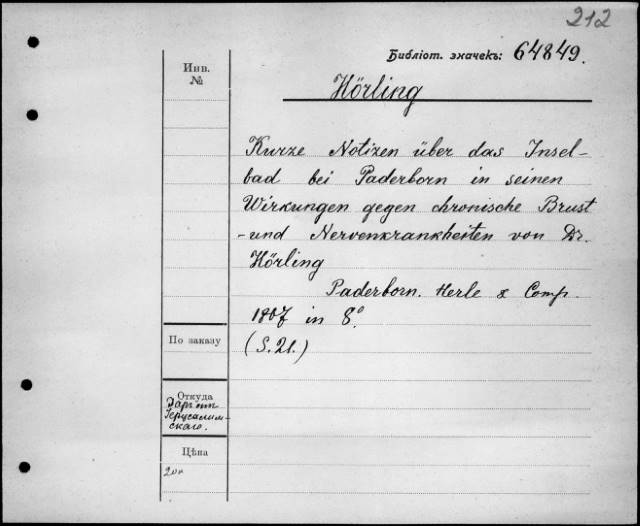 212
Библіот. значекъ: 64849.
Инв.
№
Hörling
Kurze Notizen über das Insel-
bad bei Paderborn in seinen
Wirkungen gegen chronische Brust
-und Nervenkrankheiten von Dr.
Hörling
Paderborn. Herle & Comp.
in 8º
По заказу
(S.21.)
Откуда
Іерусалим-
скаго.
Цѣна
20к